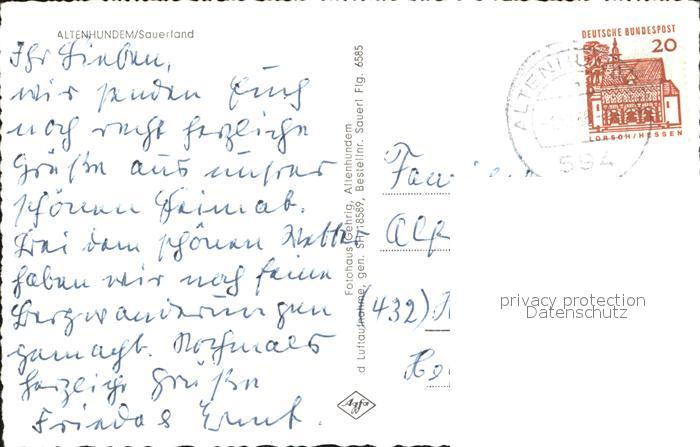 ALTENHUNDEM/Sauerland
Ihr Lieben,
wir senden Euch
noch recht herzliche
Grüße aus unsrer
schönen Heimat.
Bei dem schönen Wetter
haben wir noch feine
Bergwanderungen
gemacht. Nochmals
herzliche Grüße
Frieda & Ernst.
Fotohaus Gehrig, Altenhundem
Luftaufnahme, gen. SH/18589, Bestellnr. Sauerl Flg. 6585
Agfa
DEUTSCHE BUNDESPOST
20
LORSCH/HESSEN
594
(432)
privacy protection
Datenschutz